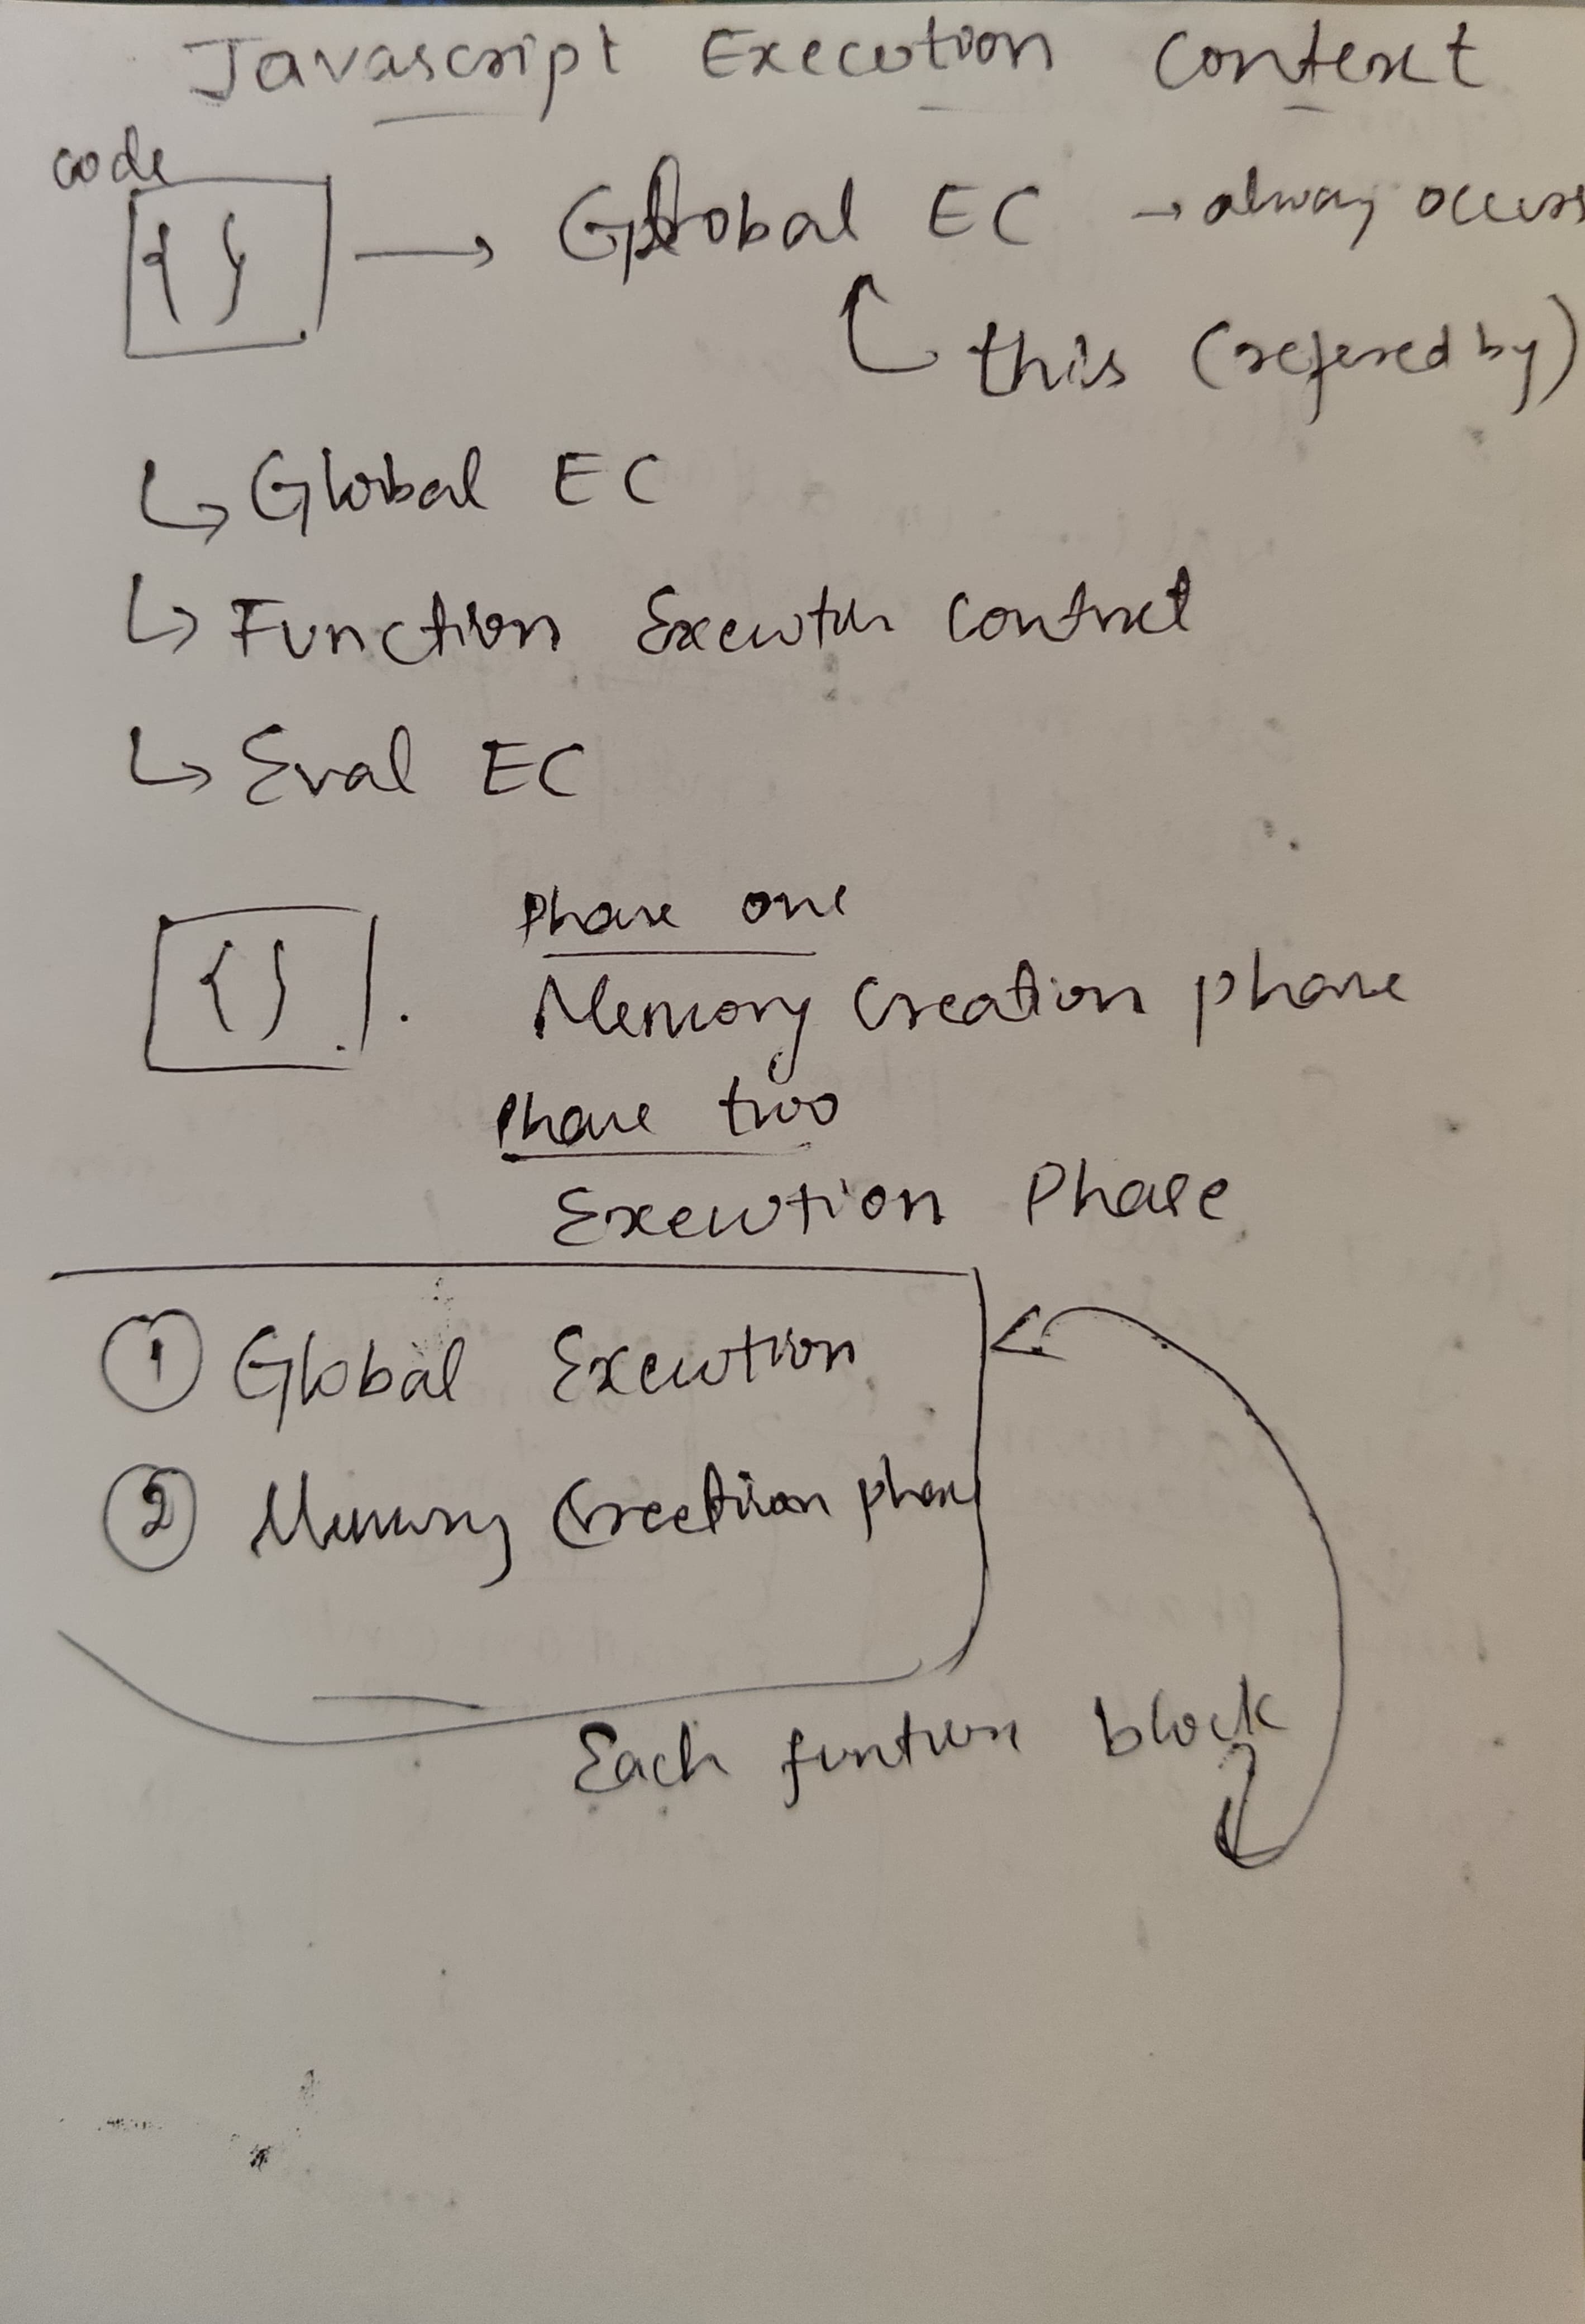 Javascript Execution Context
code
{ } → Global EC → alway occurs
this (refered by)
↳ Global EC
↳ Function Execution Context
↳ Eval EC
Phase one
{ } Memory Creation phase
Phase two
Execution Phase
① Global Execution
② Memory Creation phase
Each funtion block